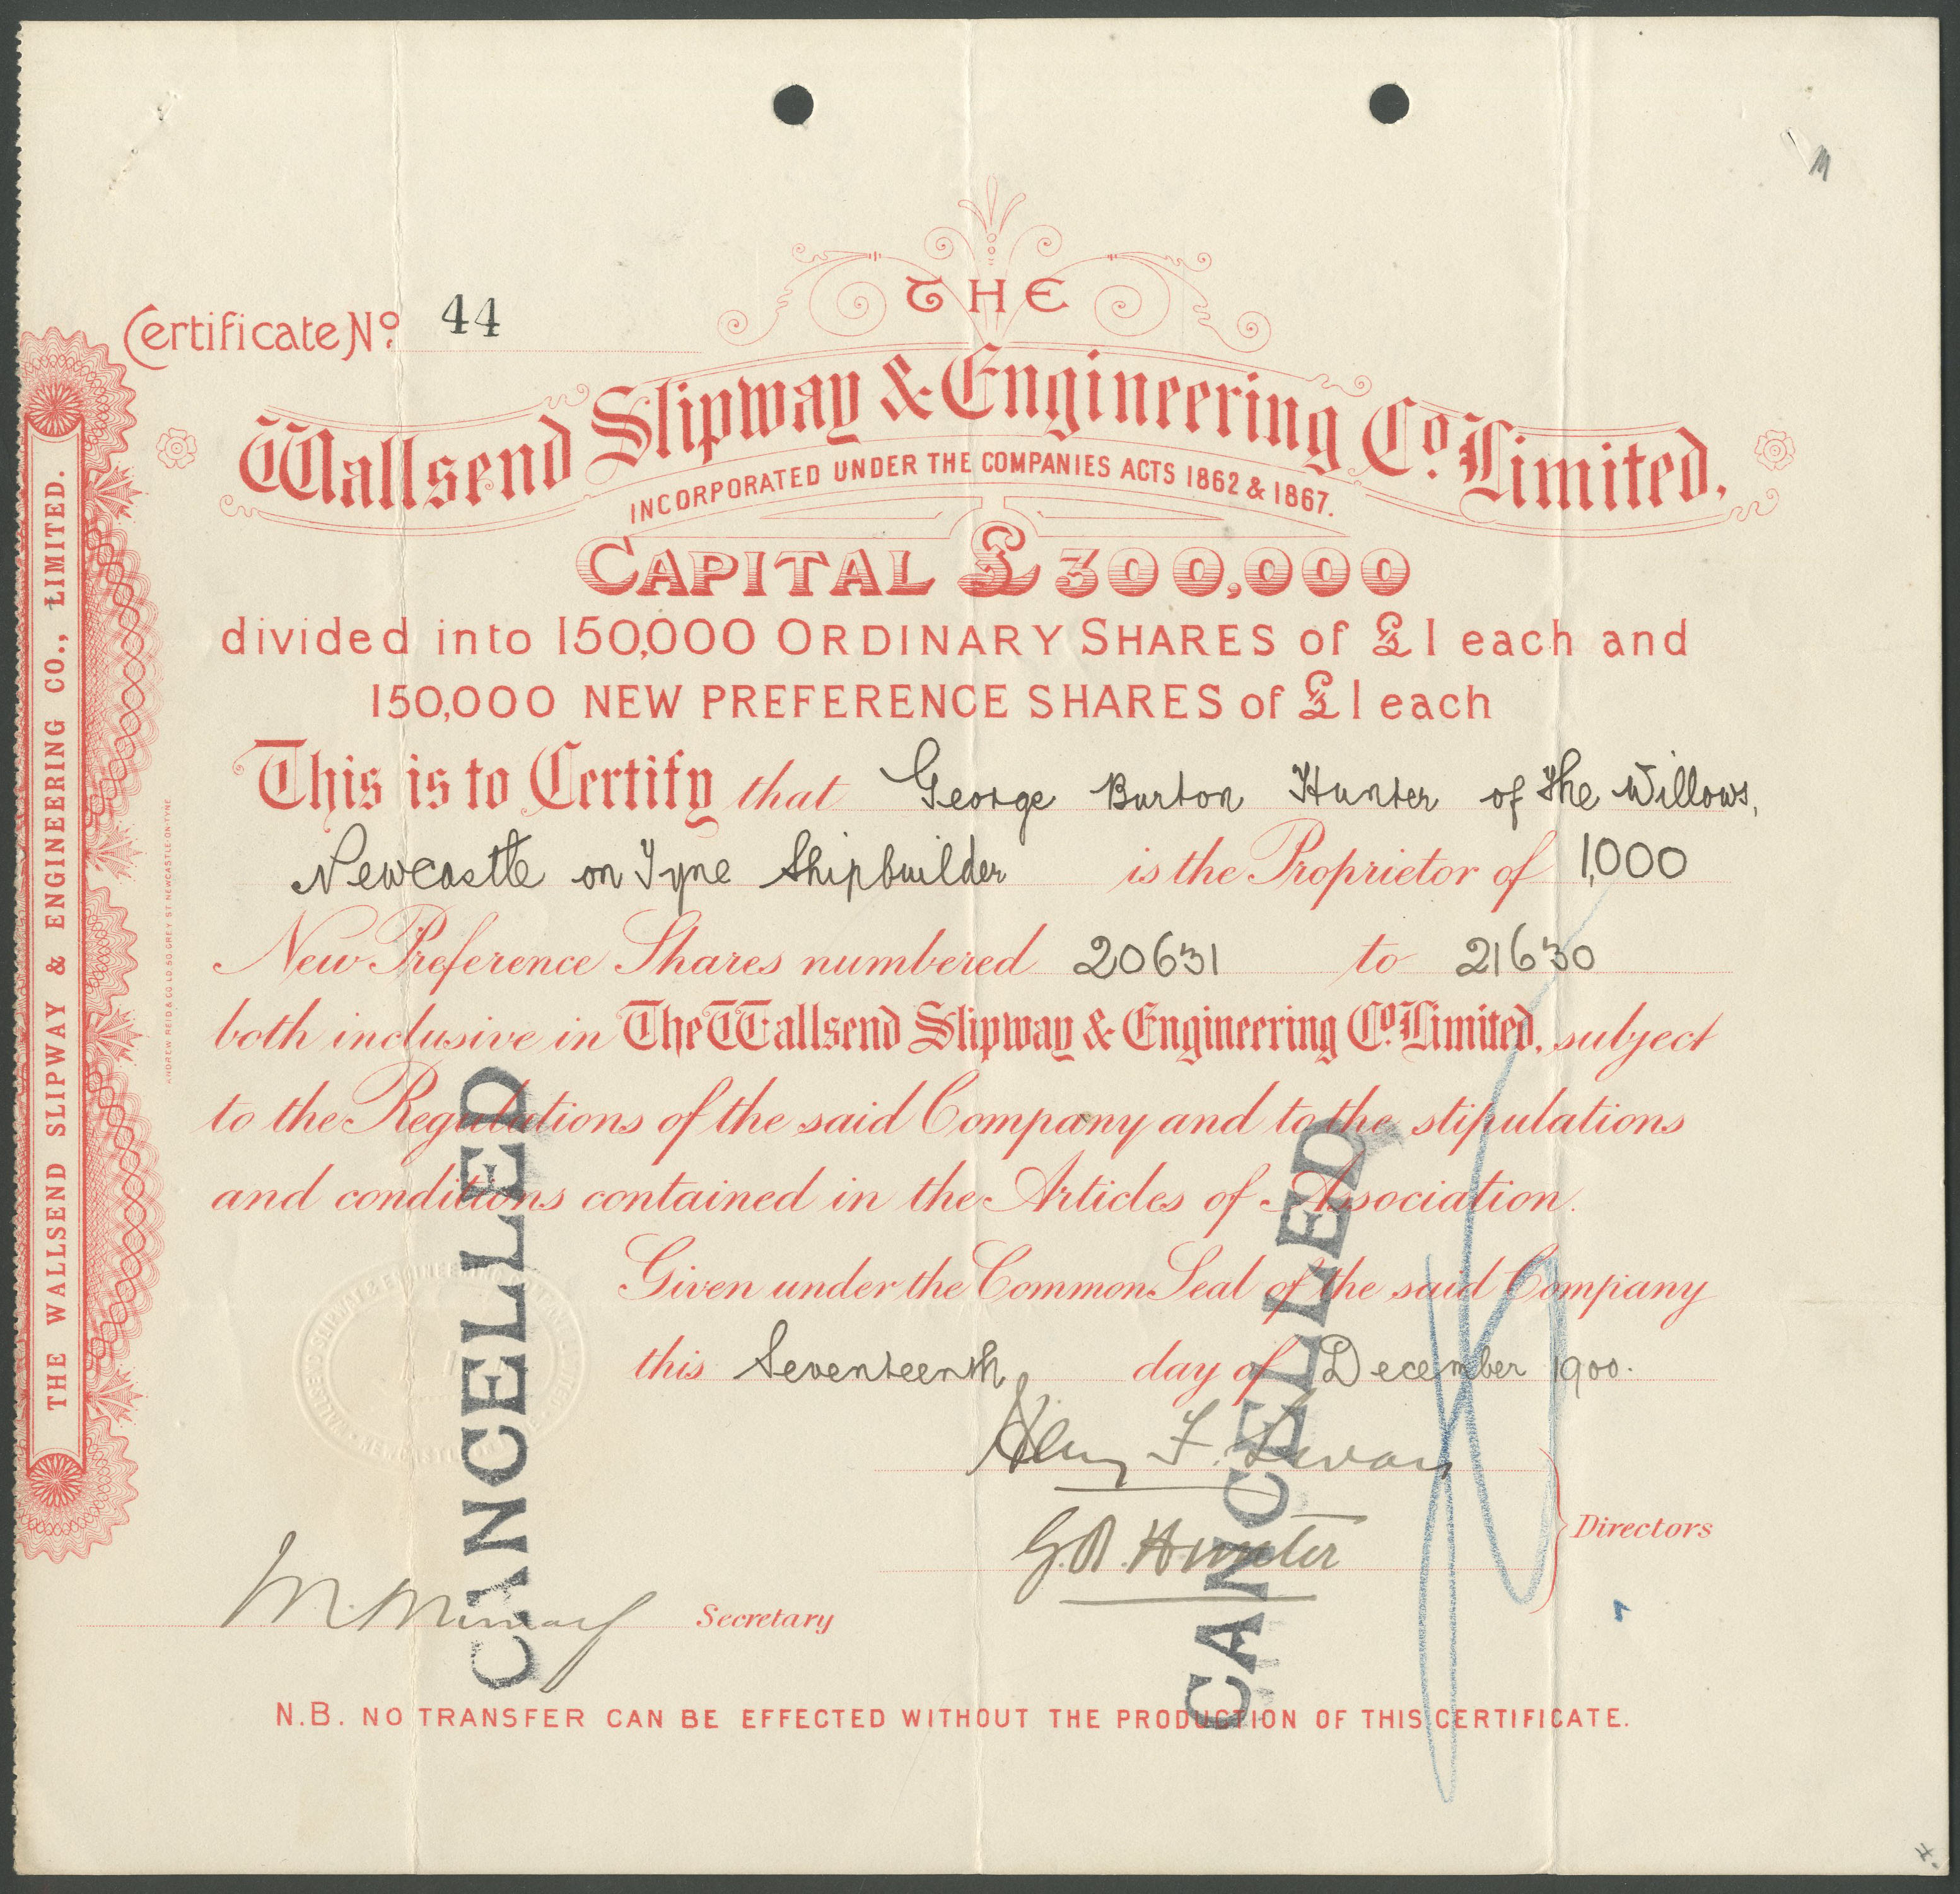 Certificate No. 44
THE
Wallsend Slipway & Engineering Co. Limited.
INCORPORATED UNDER THE COMPANIES ACTS 1862 & 1867.
CAPITAL £300,000
divided into 150,000 ORDINARY SHARES of £1 each and
150,000 NEW PREFERENCE SHARES of £1 each
This is to Certify that George Burton Hunter of The Willows,
Newcastle on Tyne Shipbuilder is the Proprietor of 1,000
New Preference Shares numbered 20631 to 21630
both inclusive in The Wallsend Slipway & Engineering Co. Limited, subject
to the Regulations of the said Company and to the stipulations
and conditions contained in the Articles of Association.
Given under the Common Seal of the said Company
this Seventeenth day of December 1900.
Henry F. Swan
G.B. Hunter
Directors
Secretary
N.B. NO TRANSFER CAN BE EFFECTED WITHOUT THE PRODUCTION OF THIS CERTIFICATE.
CANCELLED
CANCELLED
THE WALLSEND SLIPWAY & ENGINEERING CO., LIMITED.
ANDREW REID & CO LD 50 GREY ST NEWCASTLE-ON-TYNE